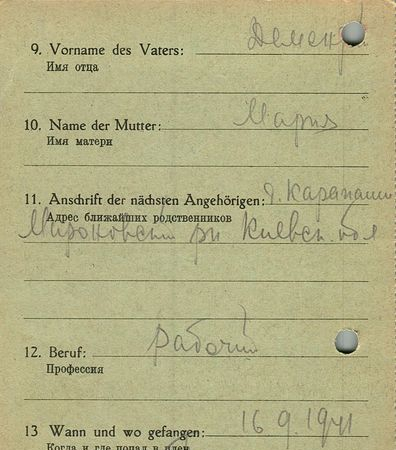 9. Vorname des Vaters:
Имя отца
10. Name der Mutter: Мария
Имя матери
11. Anschrift der nächsten Angehörigen:
Адрес ближайших родственников
Киевск. обл
12. Beruf: рабочий
Профессия
13 Wann und wo gefangen: 16.9.1941
Когда и где попал в плен